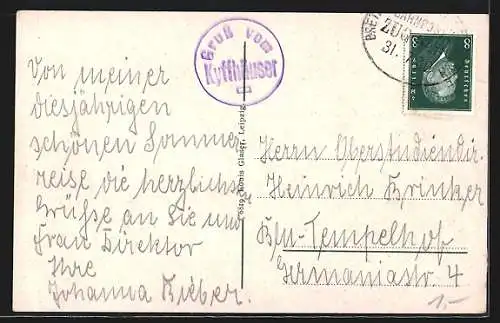 Gruß vom
Kyffhäuser
BAHNPOST
ZUG
31.
8
8
Deutsches
Reich
Von meiner
diesjährigen
schönen Sommer-
reise die herzlichst.
Grüße an Sie und
Frau Direktor
Ihre
Johanna Kieber.
Glaser, Leipzig.
Herrn Oberstudiendir.
Heinrich Brinker
Bln-Tempelhof
Germaniastr. 4
1.-